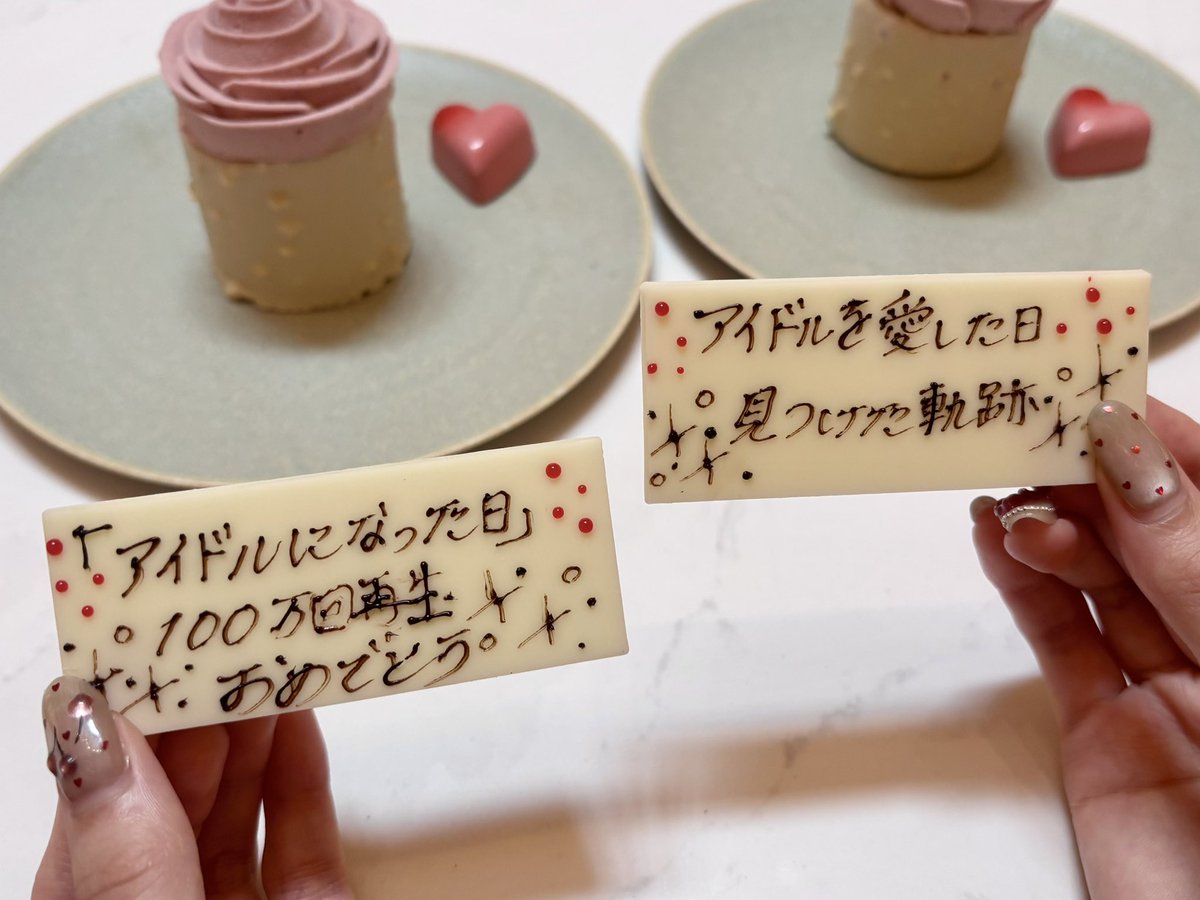 「アイドルになった日」
100万回再生
おめでとう
アイドルを愛した日
見つけた軌跡